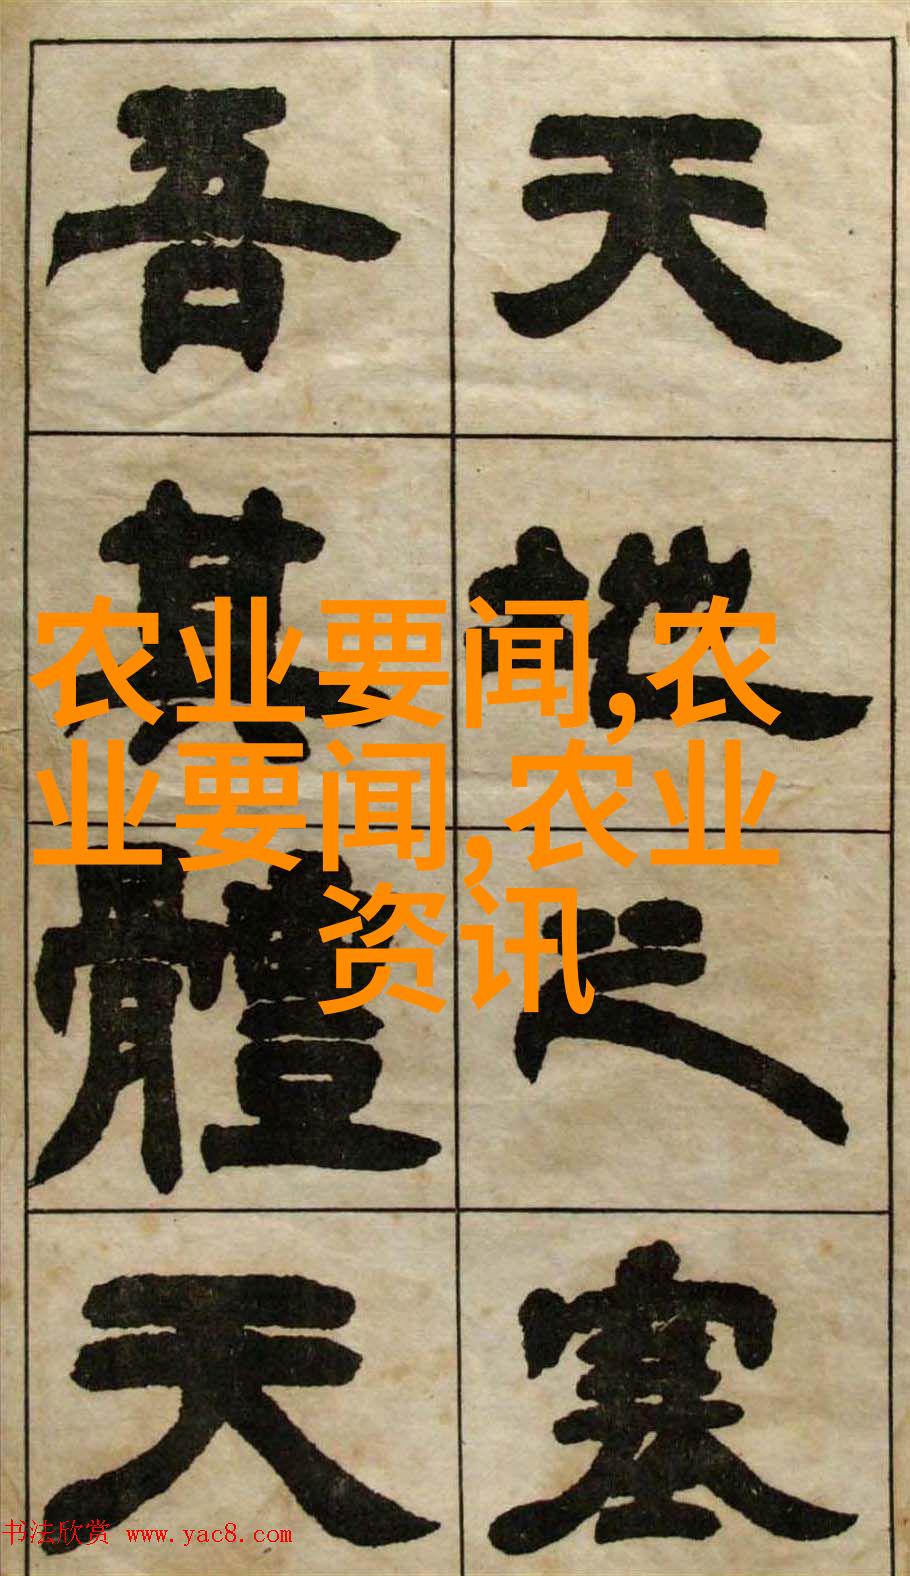 天地之塞
吾其體天
农业要闻,农
业要闻,农业
资讯
书法欣赏 www.yac8.com